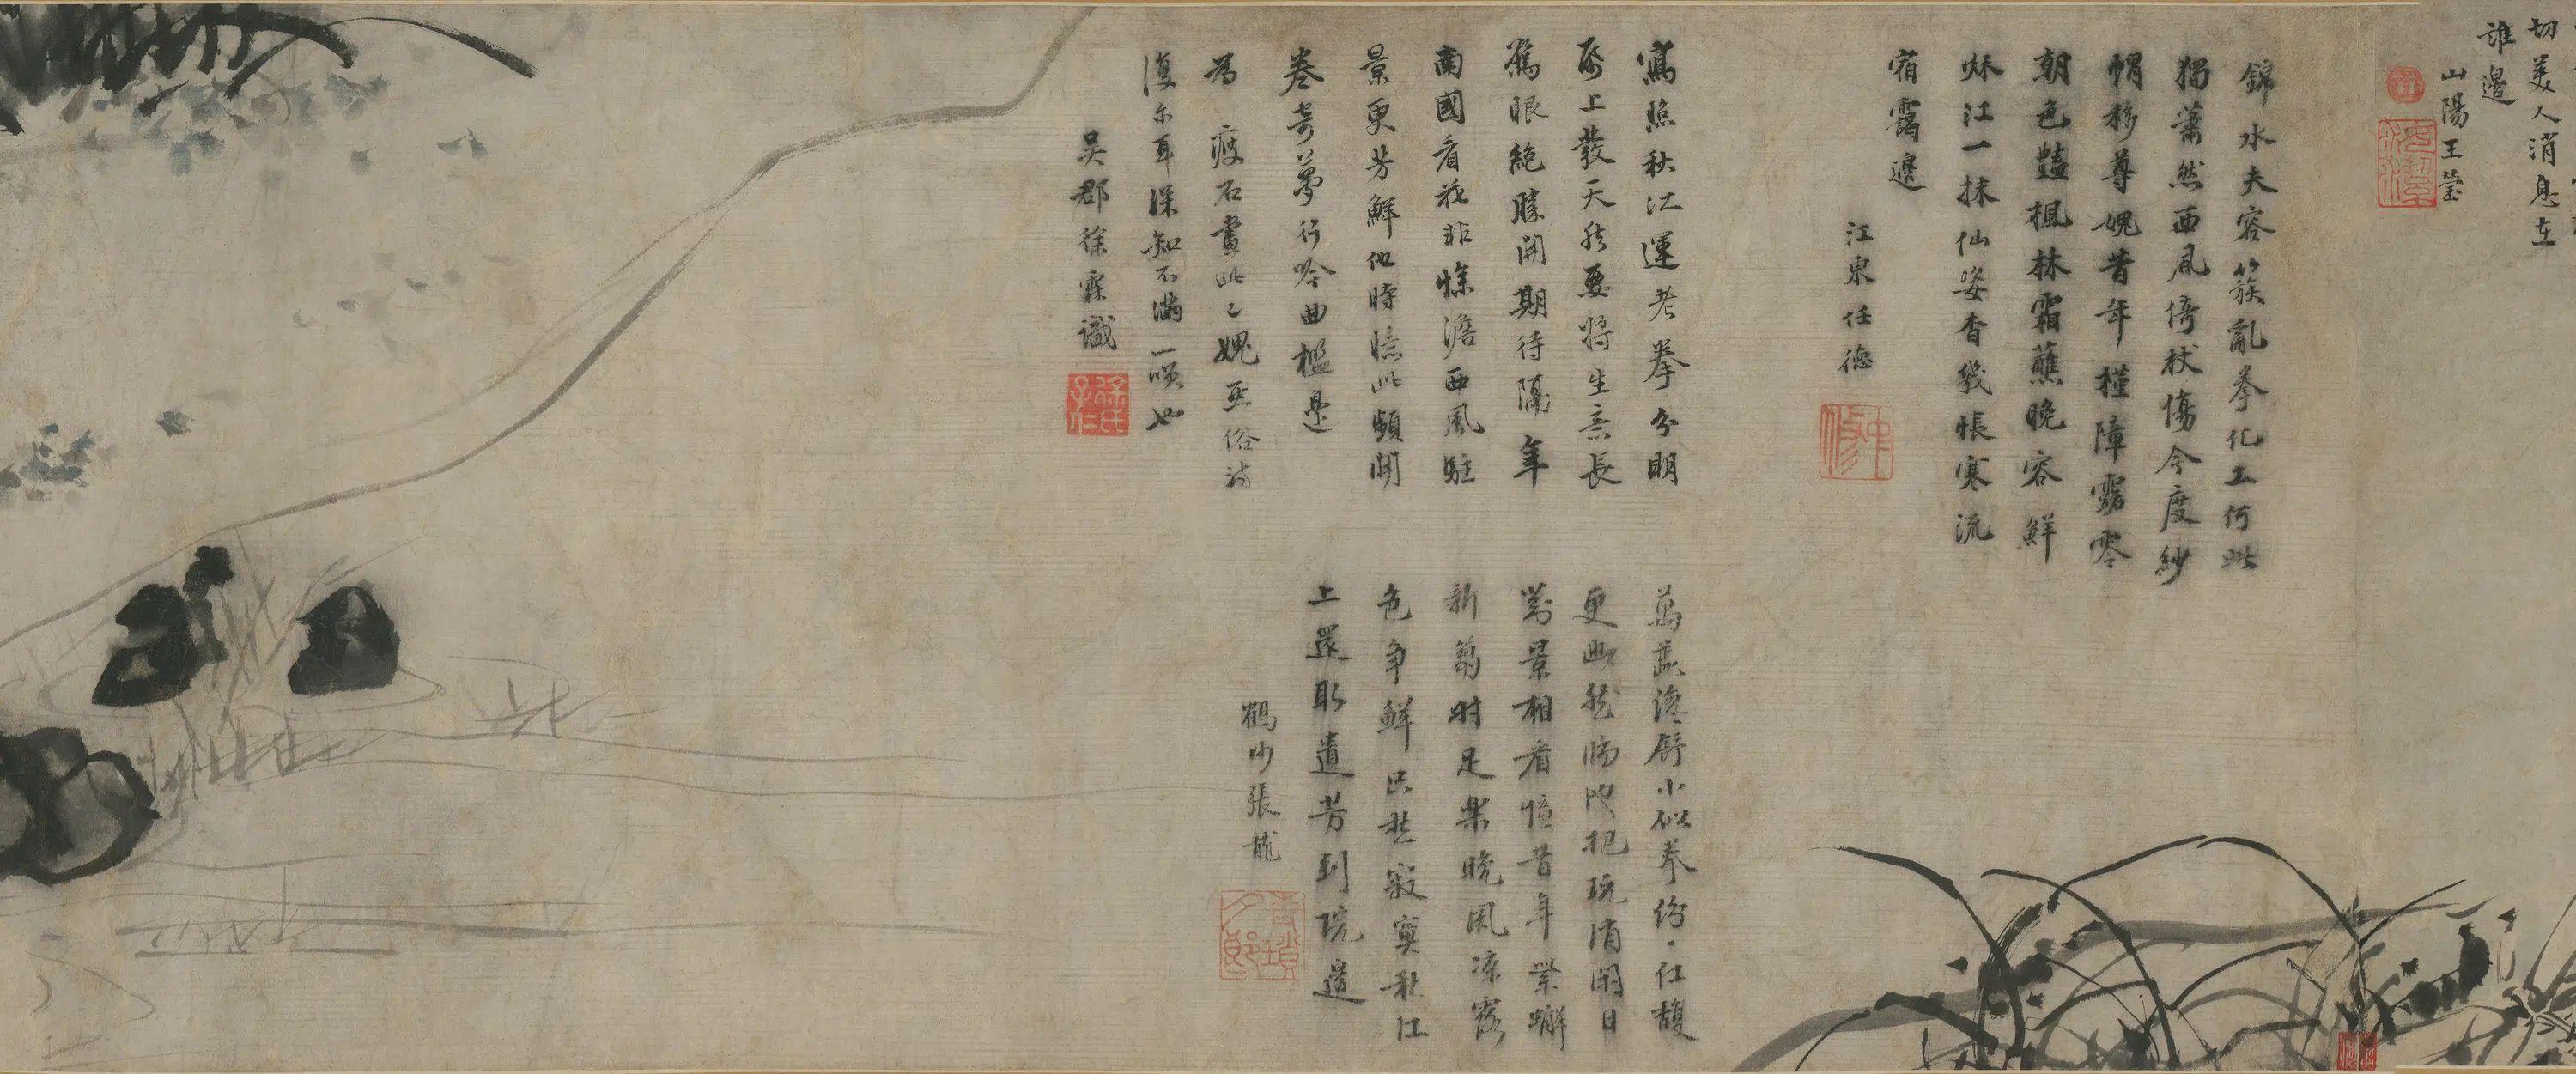 切美人消息在
誰邊
山陽王瑩
錦水夫容簇亂拳化工何此
獨蕭然西風倚杖傷今度紗
帽移尊愧昔年槿障露零
朝色豔楓林霜蘸晚容鮮
秌江一抹仙姿杳幾悵寒流
宿靄邊
江東任德
寫照秋江運老拳分明
紙上發天然要將生意長
為眼絕勝開期待隔年
南國看花非憔澹西風駐
景更芳鮮他時憶此頻開
卷奇夢行吟曲檻邊
為 癡石畫此已愧惡俗詩
復尔耳深知不滿一噱也
吳郡徐霖識
徐氏子仁
萬蕊濃舒小似拳紛紛紅馥
更幽然臨池把玩消閑日
對景相看憶昔年紫蠏
新篘時足樂晚風涼露
色爭鮮只愁寂寞秋江
上還取遺芳到院邊
鶴沙張龍
青瑣夕郎